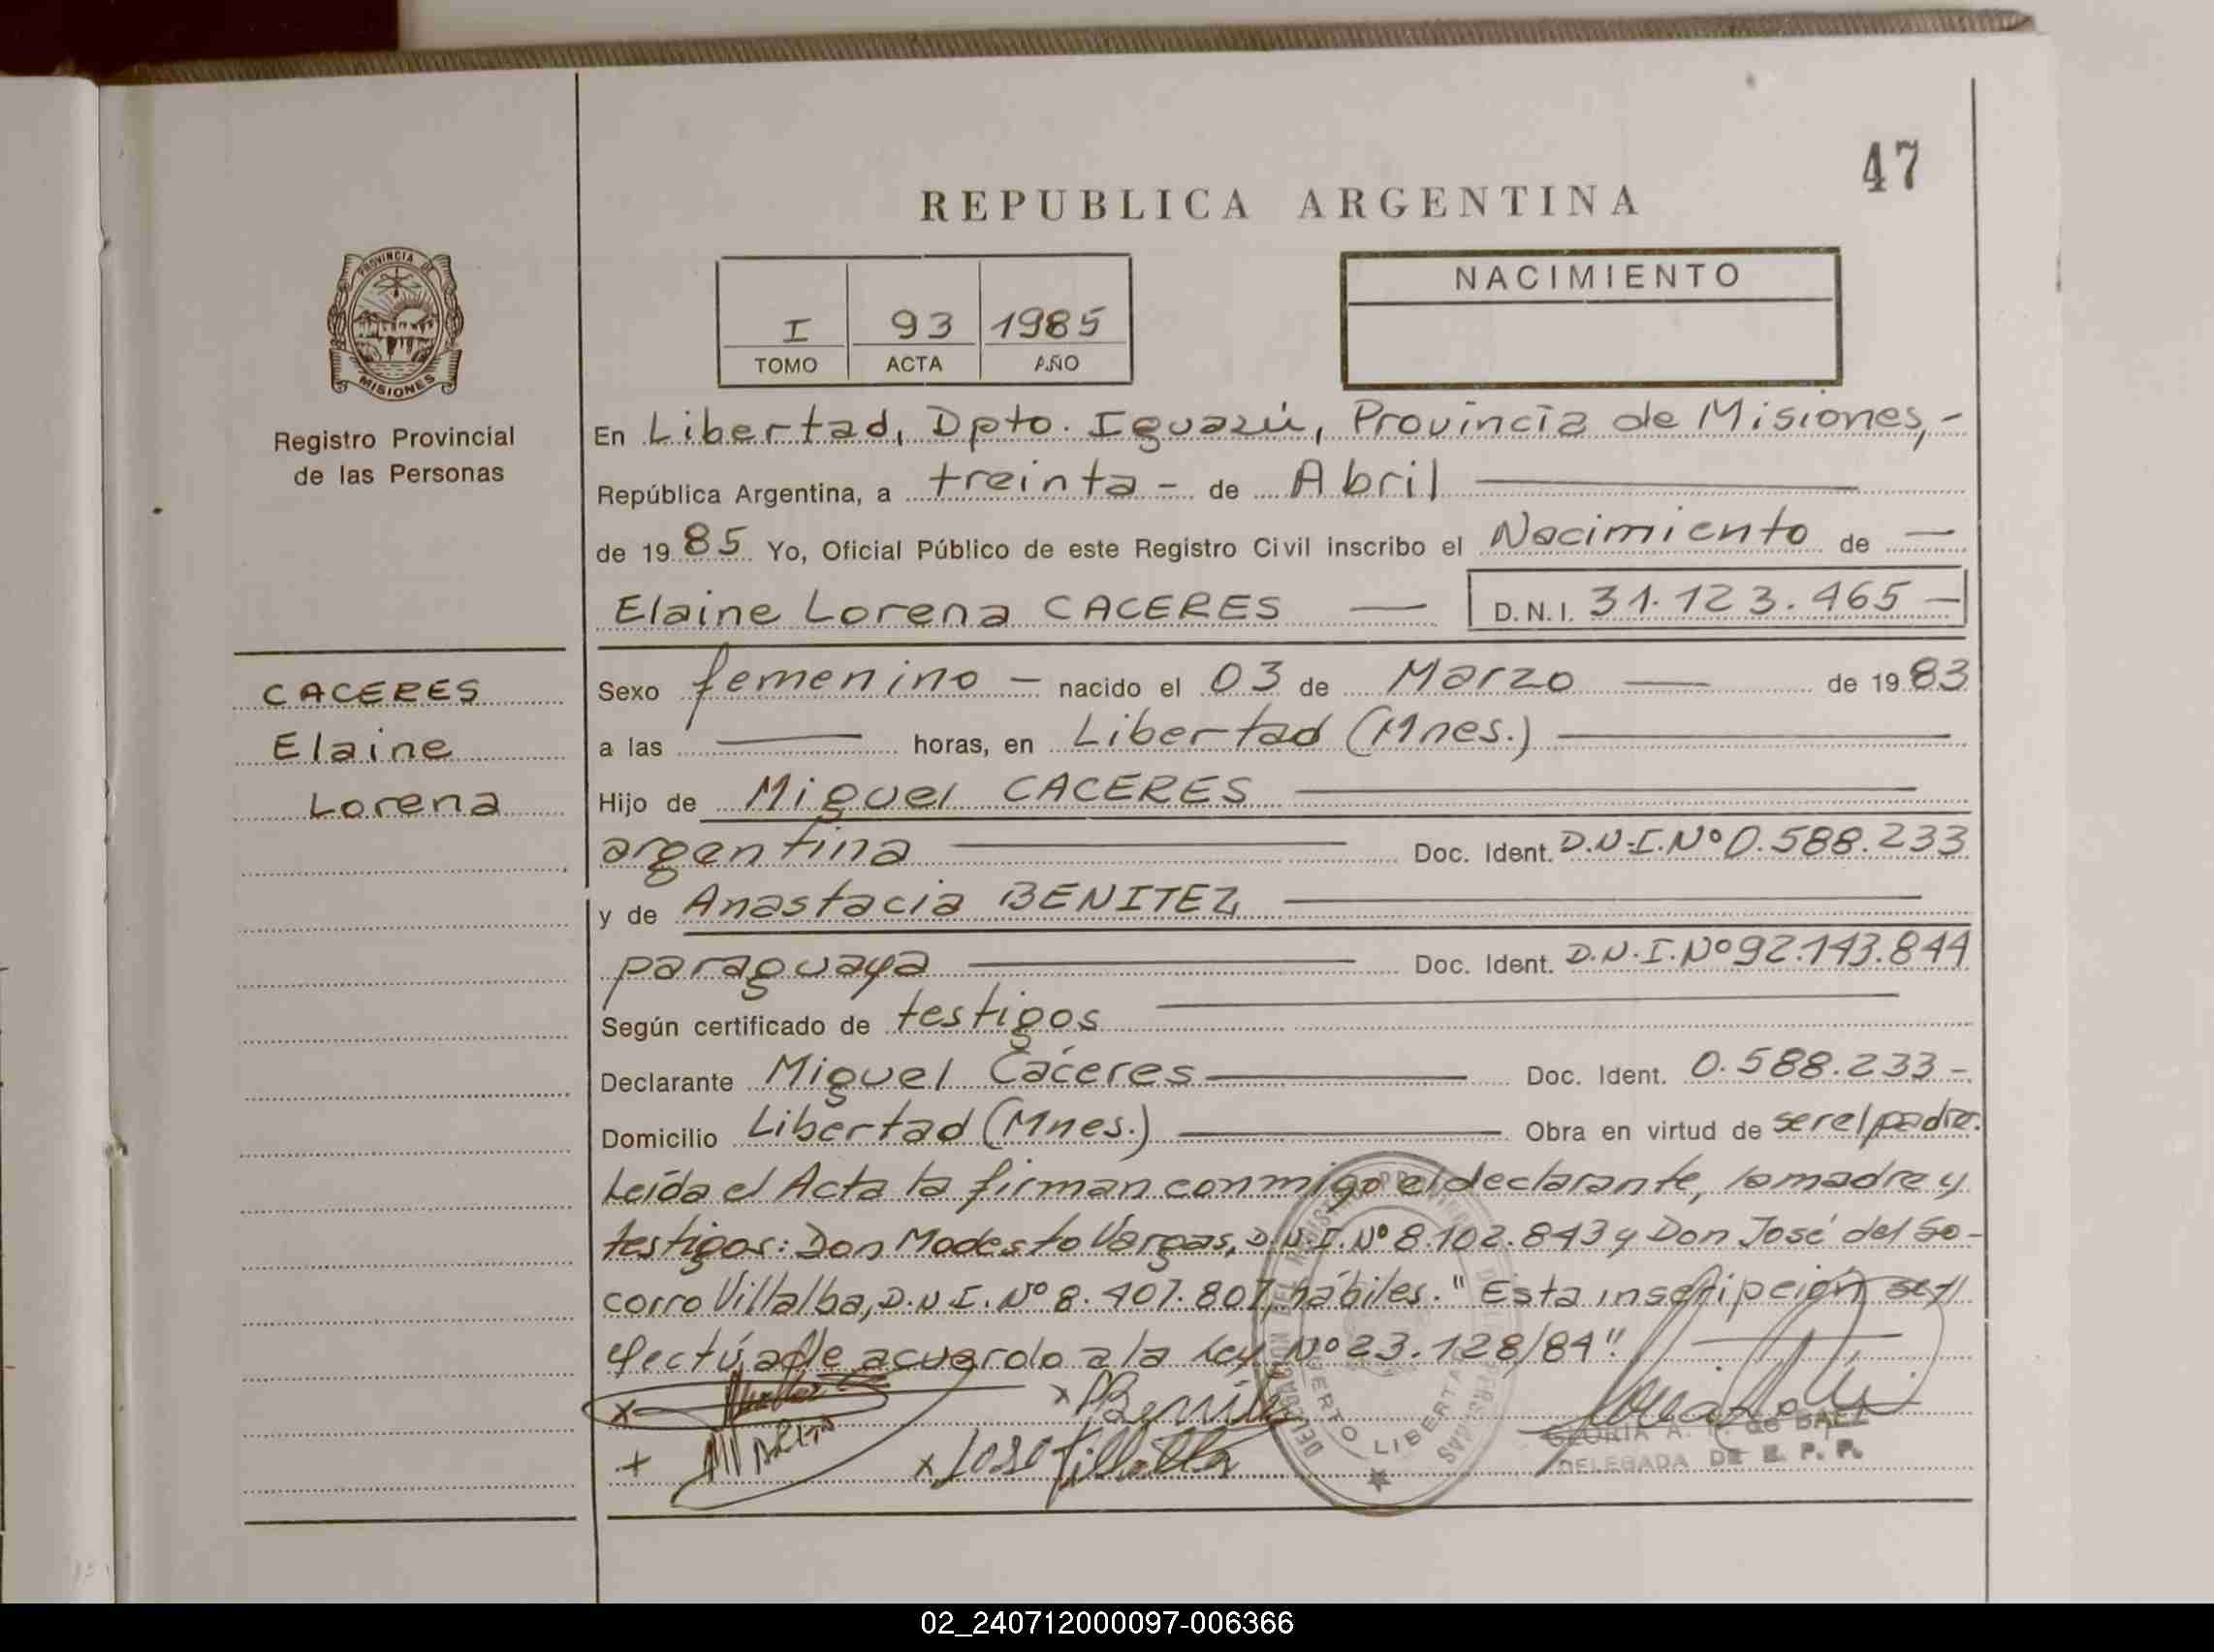 47
REPUBLICA ARGENTINA
PROVINCIA DE
MISIONES
I 93 1985
TOMO ACTA AÑO
NACIMIENTO
Registro Provincial
de las Personas
CACERES
Elaine
Lorena
En Libertad, Dpto. Iguazú, Provincia de Misiones,-
República Argentina, a treinta - de Abril
de 1985 Yo, Oficial Público de este Registro Civil inscribo el Nacimiento de
Elaine Lorena CACERES D.N.I. 31.123.465
Sexo femenino - nacido el 03 de Marzo de 1983
a las horas, en Libertad (Mnes.)
Hijo de Miguel CACERES
argentina Doc. Ident. D.N.I.Nº0.588.233
y de Anastacia BENITEZ
paraguaya Doc. Ident. D.N.I.Nº92.143.844
Según certificado de testigos
Declarante Miguel Cáceres Doc. Ident. 0.588.233-
Domicilio Libertad (Mnes.) Obra en virtud de ser el padre.
Leída el Acta la firman conmigo el declarante, la madre y
testigos: Don Modesto Vargas, D.N.I.Nº 8.102.843 y Don José del So-
corro Villalba, D.N.I.Nº 8.407.807, hábiles. "Esta inscripción se
efectúa de acuerdo a la Ley Nº 23.128/84".
x
x Benite
+ x Jose Villalba
PUERTO LIBERTAD
GLORIA A. de BAEZ
DELEGADA DE R. P. P.
02_240712000097-006366